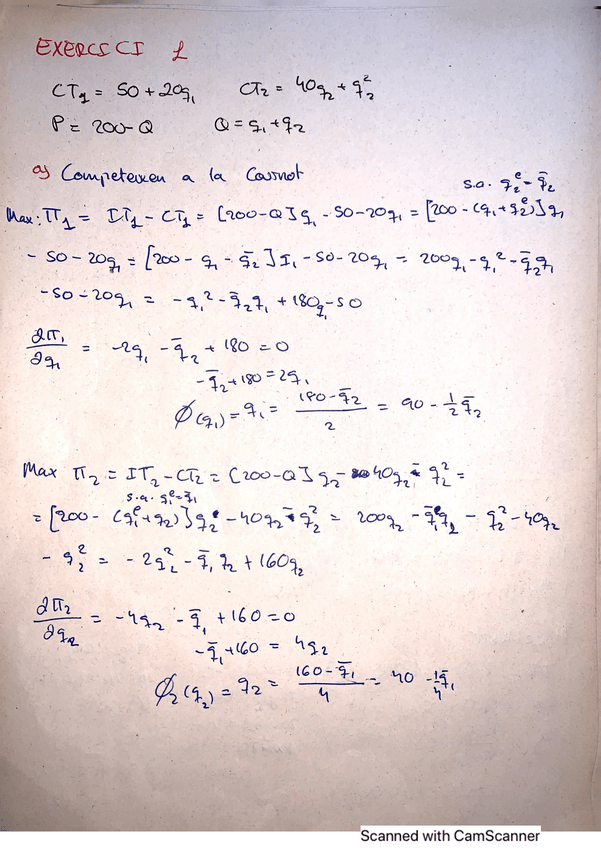 EXERCICI 1
CT₁ = 50 + 20q₁ CT₂ = 40q₂ + q₂²
P = 200 - Q Q = q₁ + q₂
a) Competeixen a la Cournot
s.a. q₂ᵉ = q̄₂
Max: Π₁ = IT₁ - CT₁ = [200-Q]q₁ - 50 - 20q₁ = [200 - (q₁+q₂ᵉ)]q₁
- 50 - 20q₁ = [200 - q₁ - q̄₂]I₁ - 50 - 20q₁ = 200q₁ - q₁² - q̄₂q₁
- 50 - 20q₁ = - q₁² - q̄₂q₁ + 180q₁ - 50
∂Π₁/∂q₁ = -2q₁ - q̄₂ + 180 = 0
- q̄₂ + 180 = 2q₁
∅(q₁) = q₁ = (180 - q̄₂)/2 = 90 - 1/2 q̄₂
Max Π₂ = IT₂ - CT₂ = [200-Q]q₂ - 40q₂ - q₂² =
s.a. q₁ᵉ = q̄₁
= [200 - (q₁ᵉ + q₂)]q₂ - 40q₂ - q₂² = 200q₂ - q̄₁ᵉq₂ - q₂² - 40q₂
- q₂² = - 2q₂² - q̄₁q₂ + 160q₂
∂Π₂/∂q₂ = -4q₂ - q̄₁ + 160 = 0
- q̄₁ + 160 = 4q₂
∅₂(q₂) = q₂ = (160 - q̄₁)/4 = 40 - 1/4 q̄₁
Scanned with CamScanner